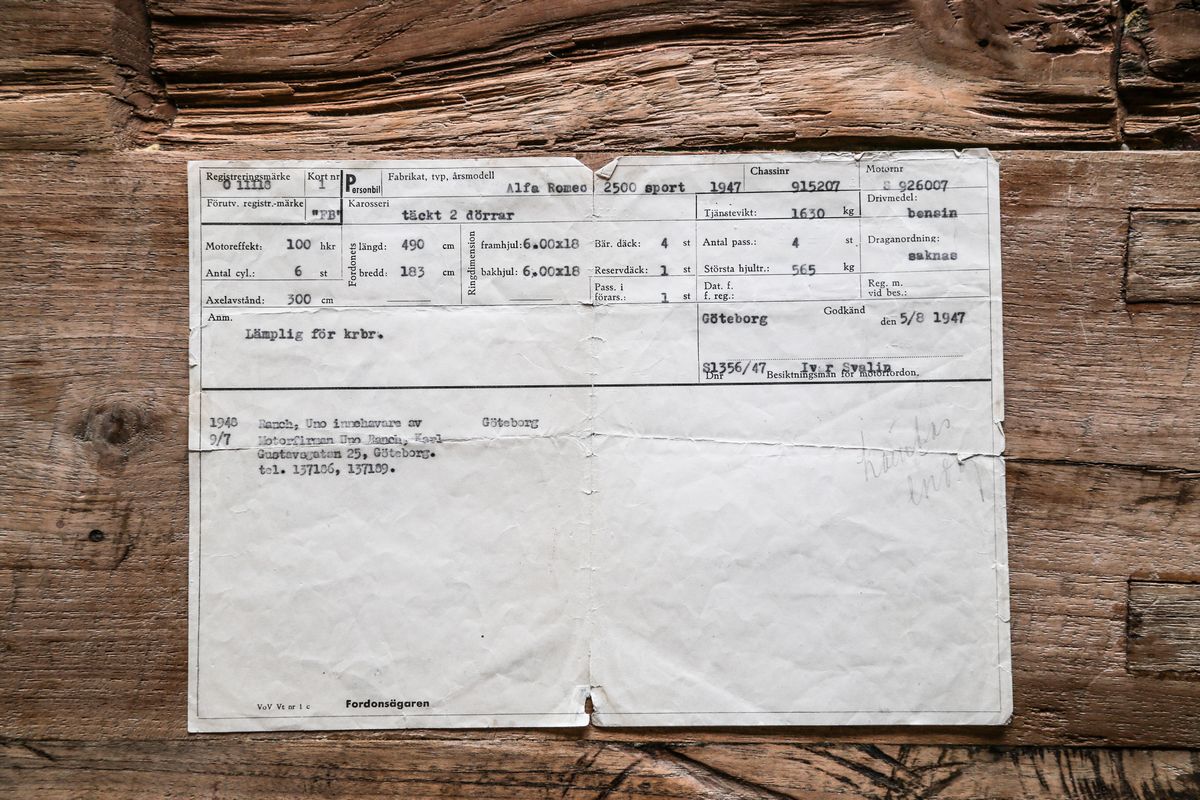 Registreringsmärke Kort nr Personbil Fabrikat, typ, årsmodell Chassinr Motornr
O 11118 1 Alfa Romeo 2500 sport 1947 915207 S 926007
Förutv. registr.-märke "FB" Karosseri Tjänstevikt: 1630 kg Drivmedel:
täckt 2 dörrar bensin
Motoreffekt: 100 hkr Fordonets längd: 490 cm Ringdimension framhjul: 6.00x18 Bär. däck: 4 st Antal pass.: 4 st Draganordning:
saknas
Antal cyl.: 6 st bredd: 183 cm bakhjul: 6.00x18 Reservdäck: 1 st Största hjultr.: 565 kg
Axelavstånd: 300 cm Pass. i förars.: 1 st Dat. f. f. reg.: Reg. m. vid bes.:
Anm. Göteborg Godkänd den 5/8 1947
Lämplig för krbr.
S1356/47 Ivar Svalin
Dnr Besiktningsman för motorfordon.
1948 Ranch, Uno innehavare av Göteborg
9/7 Motorfirman Uno Ranch, Karl
Gustavsgatan 25, Göteborg.
tel. 137186, 137189.
VoV Vt nr 1 c Fordonsägaren